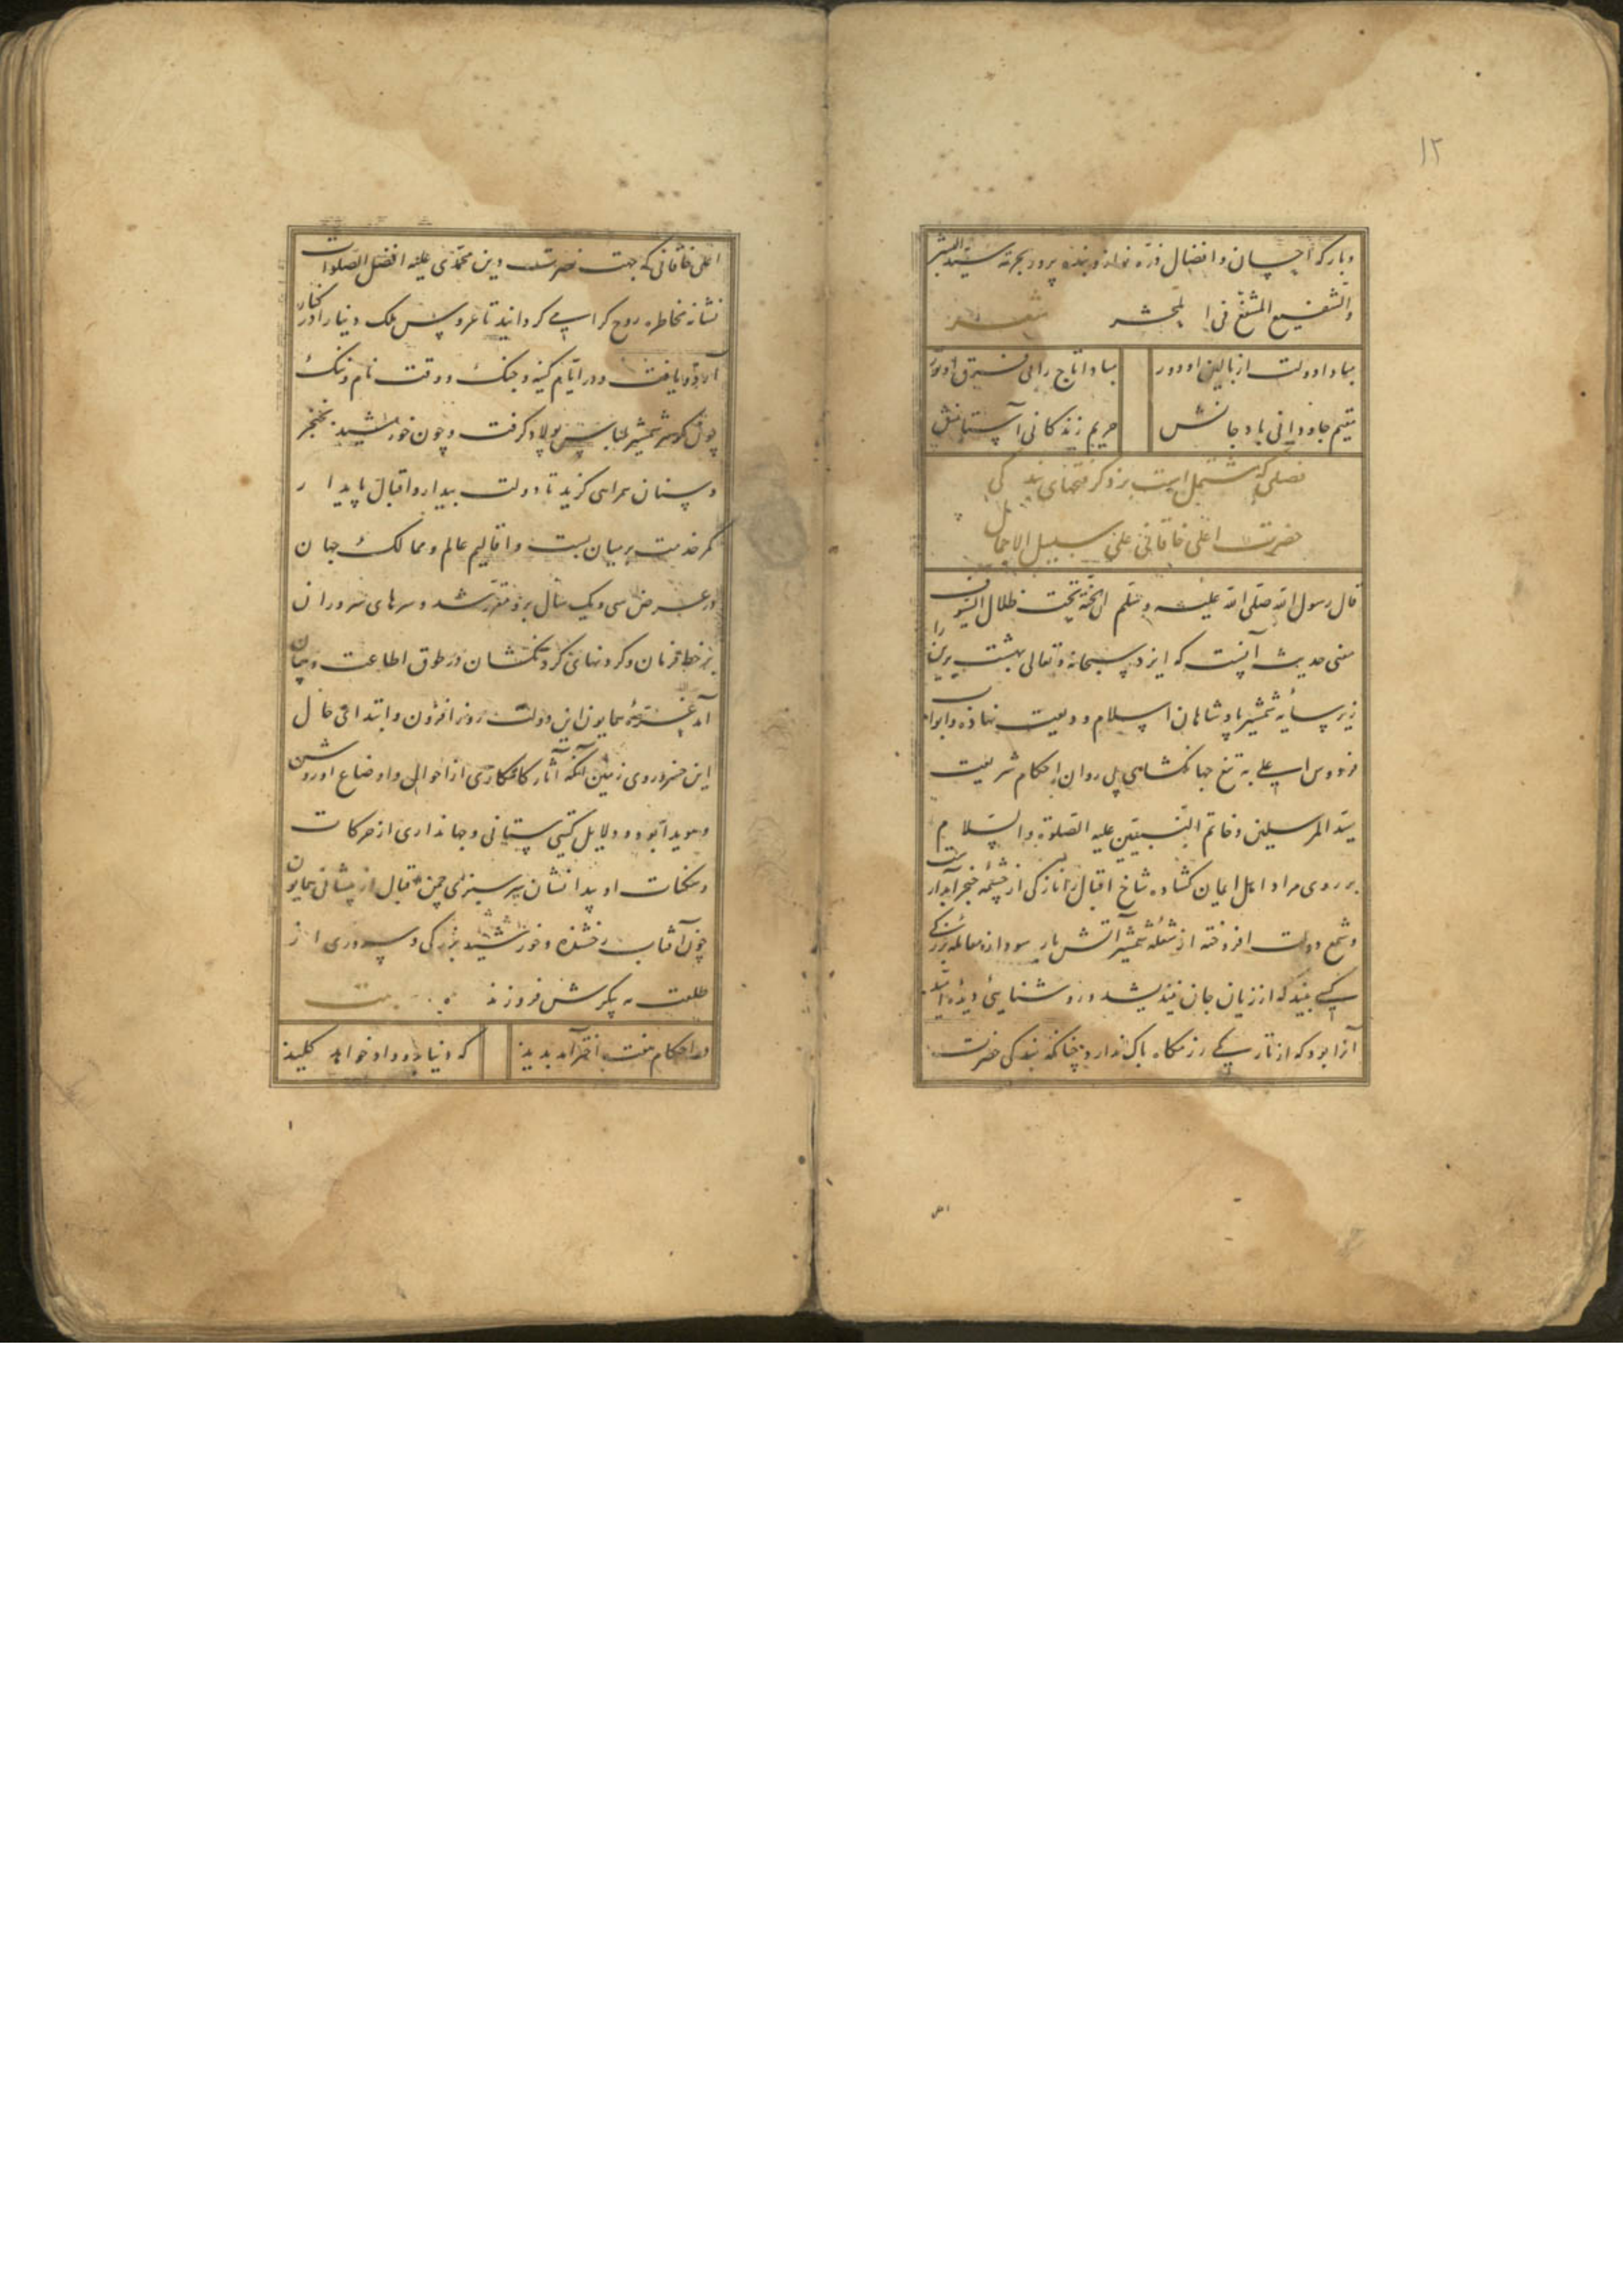 ۱۲
و بارکه احسان و افضال ذره نواز و بنده پرور بحرمة سید البشر
والشفیع المشفع فی المحشر شعر
مبادا دولت از بالین او دور
مبادا تاج را بی فرق او نور
مقیم جاودانی باد جانش
حریم زندکانی آستانش
فصلی که مشتمل است بر ذکر فتحهای بندکی
حضرت اعلی خاقانی علی سبیل الاجمال
قال رسول الله صلی الله علیه وسلم الجنة تحت ظلال السیوف
معنی حدیث آنست که ایزد سبحانه و تعالی بهشت برین را
زیر سایه شمشیر پادشاهان اسلام ودیعت نهاده و ابواب
فردوس اعلی به تیغ جهانکشای پی روان احکام شریعت
سید المرسلین و خاتم النبیین علیه الصلوة والسلام
بر روی مراد اهل ایمان کشاده شاخ اقبال را نازکی از چشمه خنجر آبدار
و شمع دولت افروخته از شعله شمشیر آتش بار سود از معامله بزرکی
کسی بیند که از زیان جان نیندیشد و روشنایی دیده امید
آنرا بود که از تاریکی رزمکاه باک ندارد چنانکه بندکی حضرت
اعلی
اعلی خاقانی که جهت نصرت دین محمدی علیه افضل الصلوات
نشانه مخاطره روح کرامی کردانید تا عروس ملک دنیا را در کنار
آرزو یافت و در ایام کینه و جنک و وقت نام و ننک
چون کوهر شمشیر لباس پولاد کرفت و چون خورشید خنجر
و سنان همراهی کزید تا دولت بیدار و اقبال پایدار
کمر خدمت بر میان بست و اقالیم عالم و ممالک جهان
در عرض سی و یک سال برو مقرر شد و سرهای سروران
بر خط فرمان و کردنهای کردنکشان در طوق اطاعت و پیمان
آمد غره همایون این دولت روز افزون و ابتدای حال
این خسرو روی زمین آنکه آثار کامکاری از احوال و اوضاع او روشن
و هویدا بود و دلایل کیتی ستانی و جهانداری از حرکات
و سکنات او پیدا نشان سرسبزی چمن اقبال از پیشانی همایون
چون آفتاب رخشنده و خورشید بزرکی و سروری از
طلعت مه پیکرش فروزنده بیت
احکام هفت اختر آمد بدید
که دنیا بدو داد خواهد کلید